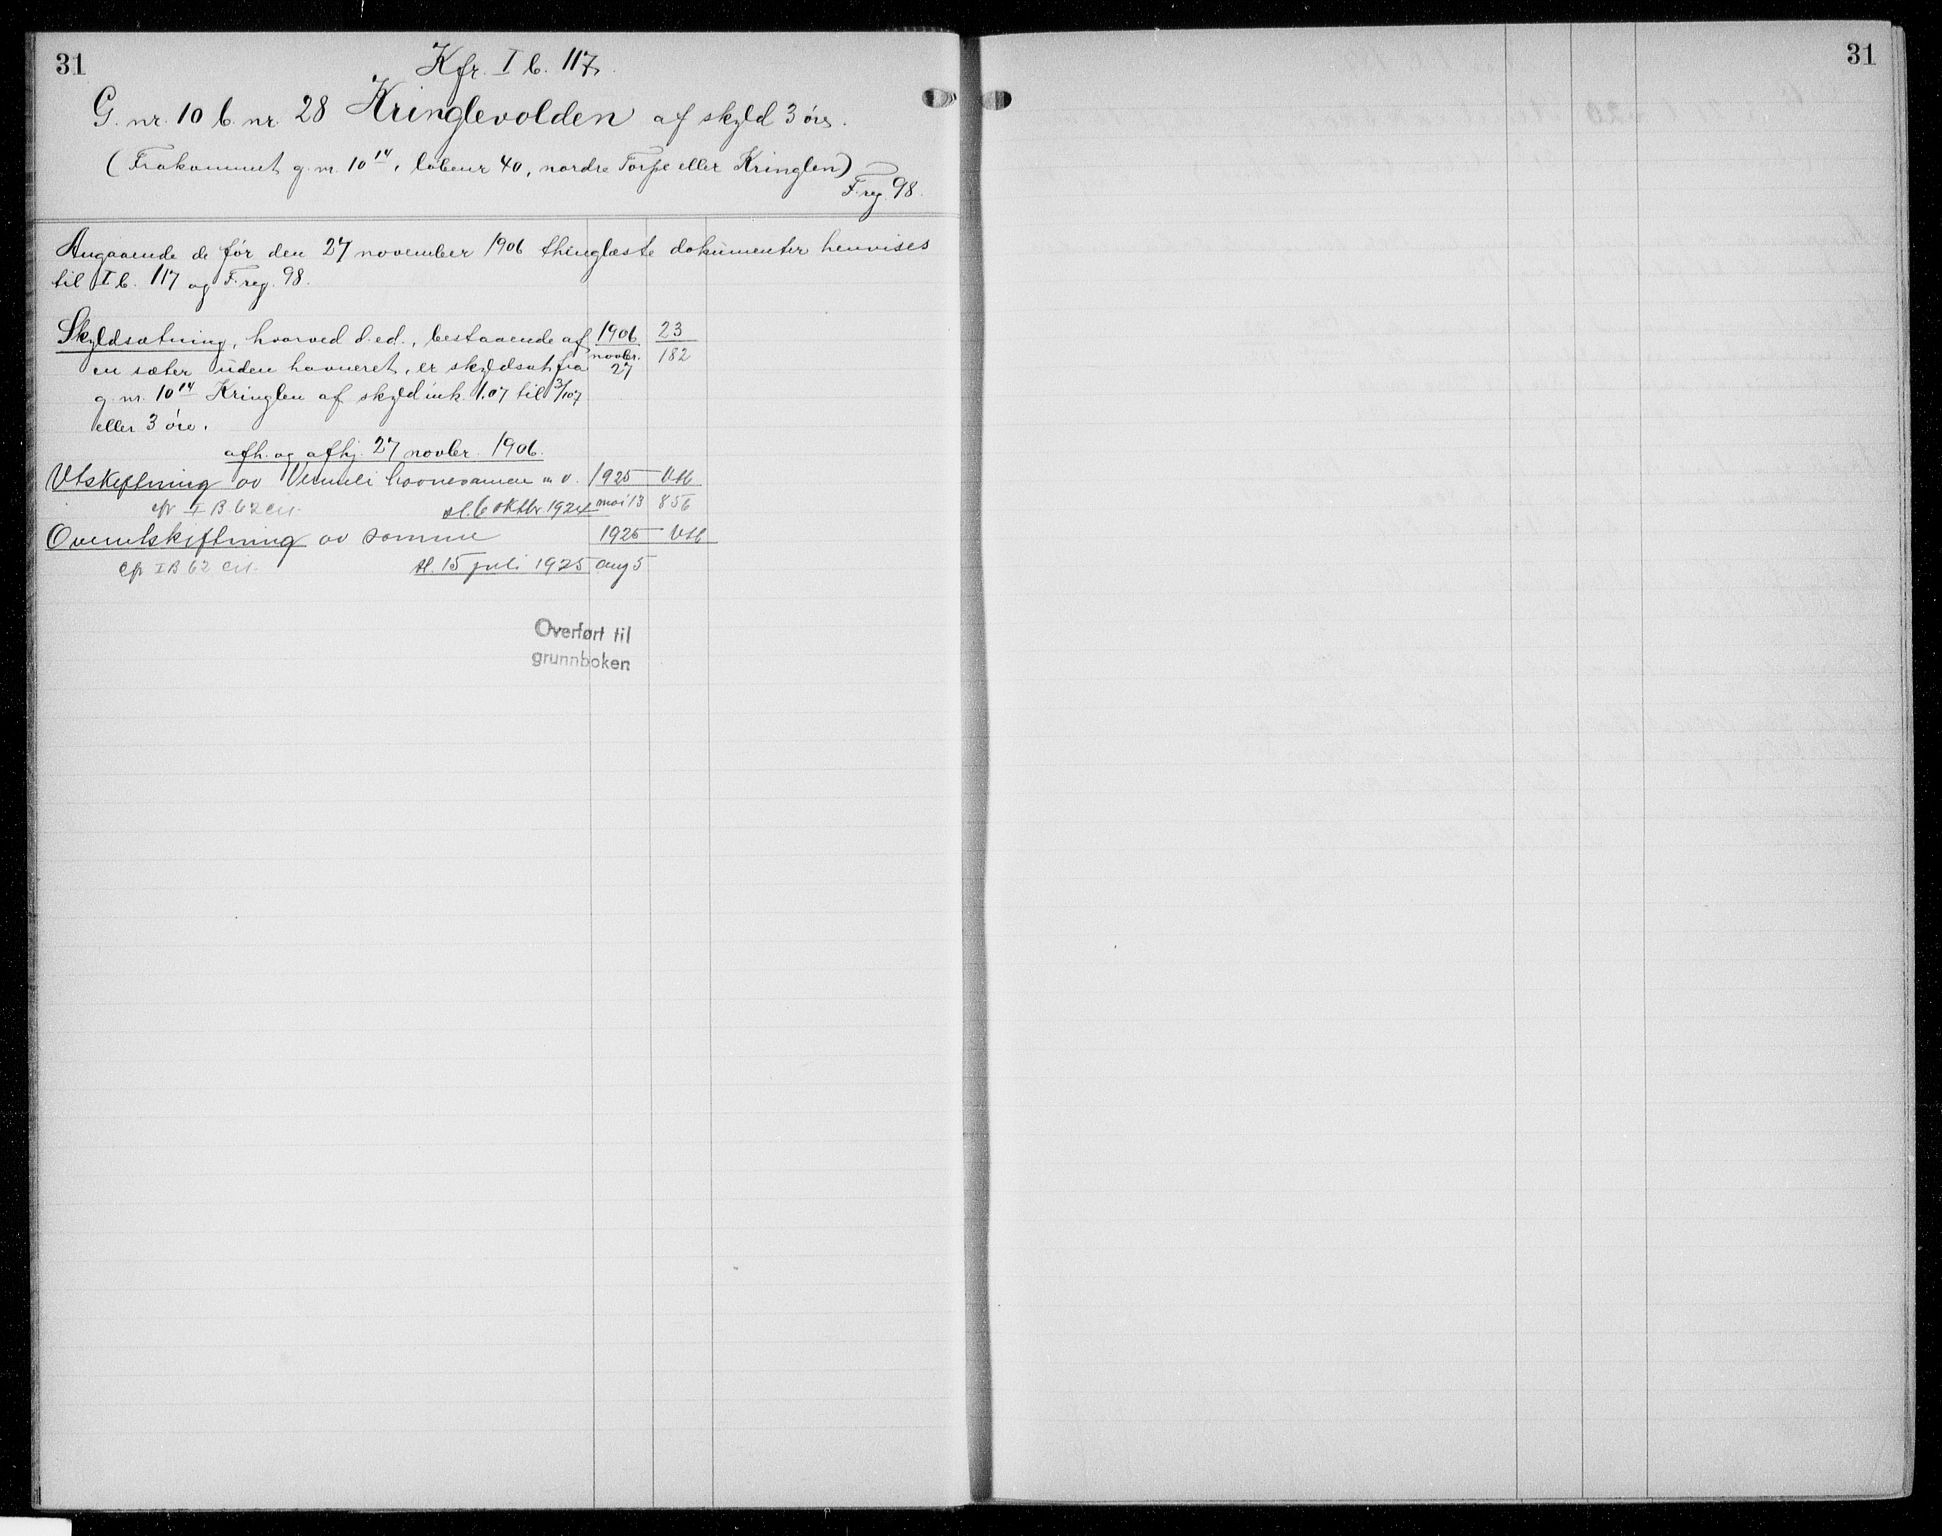 31
Kfr. I b. 117.
G. nr. 10 b. nr. 28 Kringlevolden af skyld 3 øre.
(Frakommet g. nr. 10 14, løbenr 40, nordre Torpe eller Kringlen)
F. reg. 98.
Angaaende de før den 27 november 1906 thinglæste dokumenter henvises
til I b. 117 og F. reg. 98.
Skyldsætning, hvorved d. ed., bestaaende af 1906 23
en sæter uden havneret, er skyldsat fra novbr. 182
27
g. nr. 10 14 Kringlen af skyld mk. 1.07 til 3/107
eller 3 øre.
afh. og afhj. 27 novbr. 1906.
Utskiftning av havnesameie m. v. 1925 Utb
cfr I B 62 sl. 6 oktbr 1924 mai 13 856
Overutskiftning av samme 1925 Utb
cfr I B 62 sl. 15 juli 1925 aug 5
Overført til
grunnboken
31